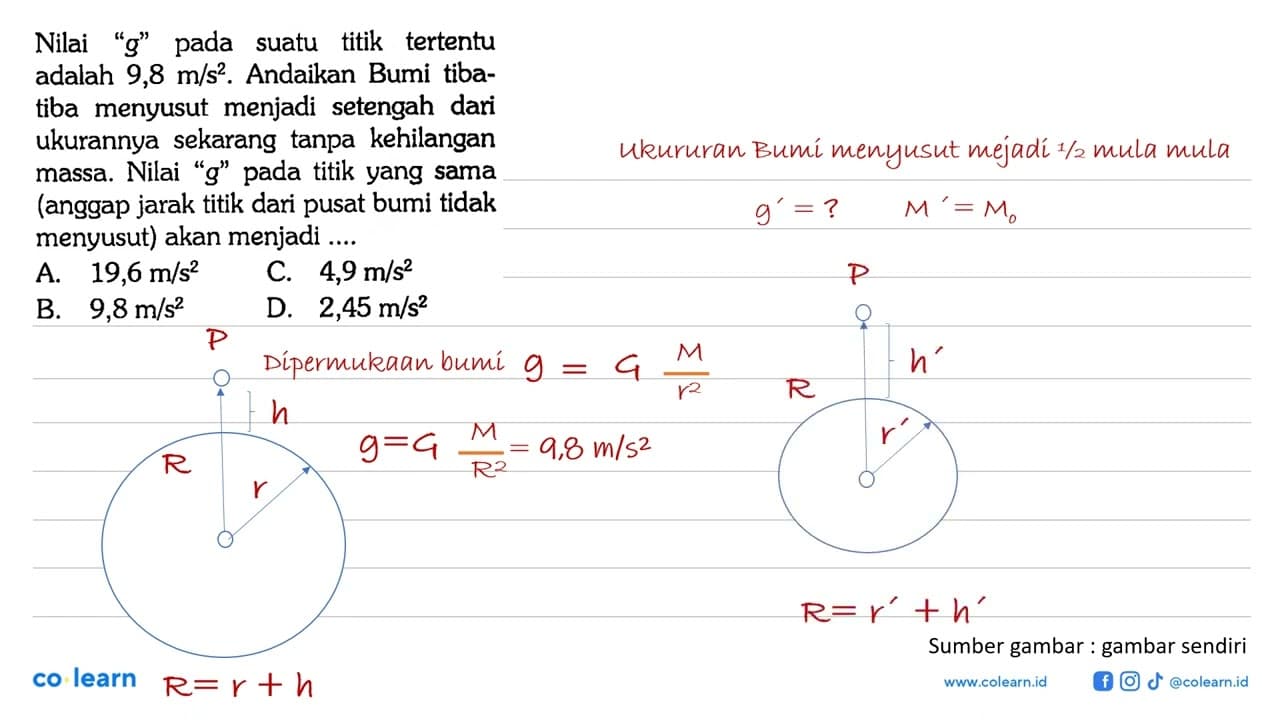 Nilai “g” pada suatu titik tertentu
adalah 9,8 m/s². Andaikan Bumi tiba-
tiba menyusut menjadi setengah dari
ukurannya sekarang tanpa kehilangan
massa. Nilai “g” pada titik yang sama
(anggap jarak titik dari pusat bumi tidak
menyusut) akan menjadi ....
A. 19,6 m/s² C. 4,9 m/s²
B. 9,8 m/s² D. 2,45 m/s²
Ukururan Bumi menyusut mejadi 1/2 mula mula
g′ = ? M′ = M₀
P
h
R
r
R = r + h
Dipermukaan bumi g = G M/r²
g = G M/R² = 9,8 m/s²
P
h′
R
r′
R = r′ + h′
Sumber gambar : gambar sendiri
co learn
www.colearn.id
@colearn.id